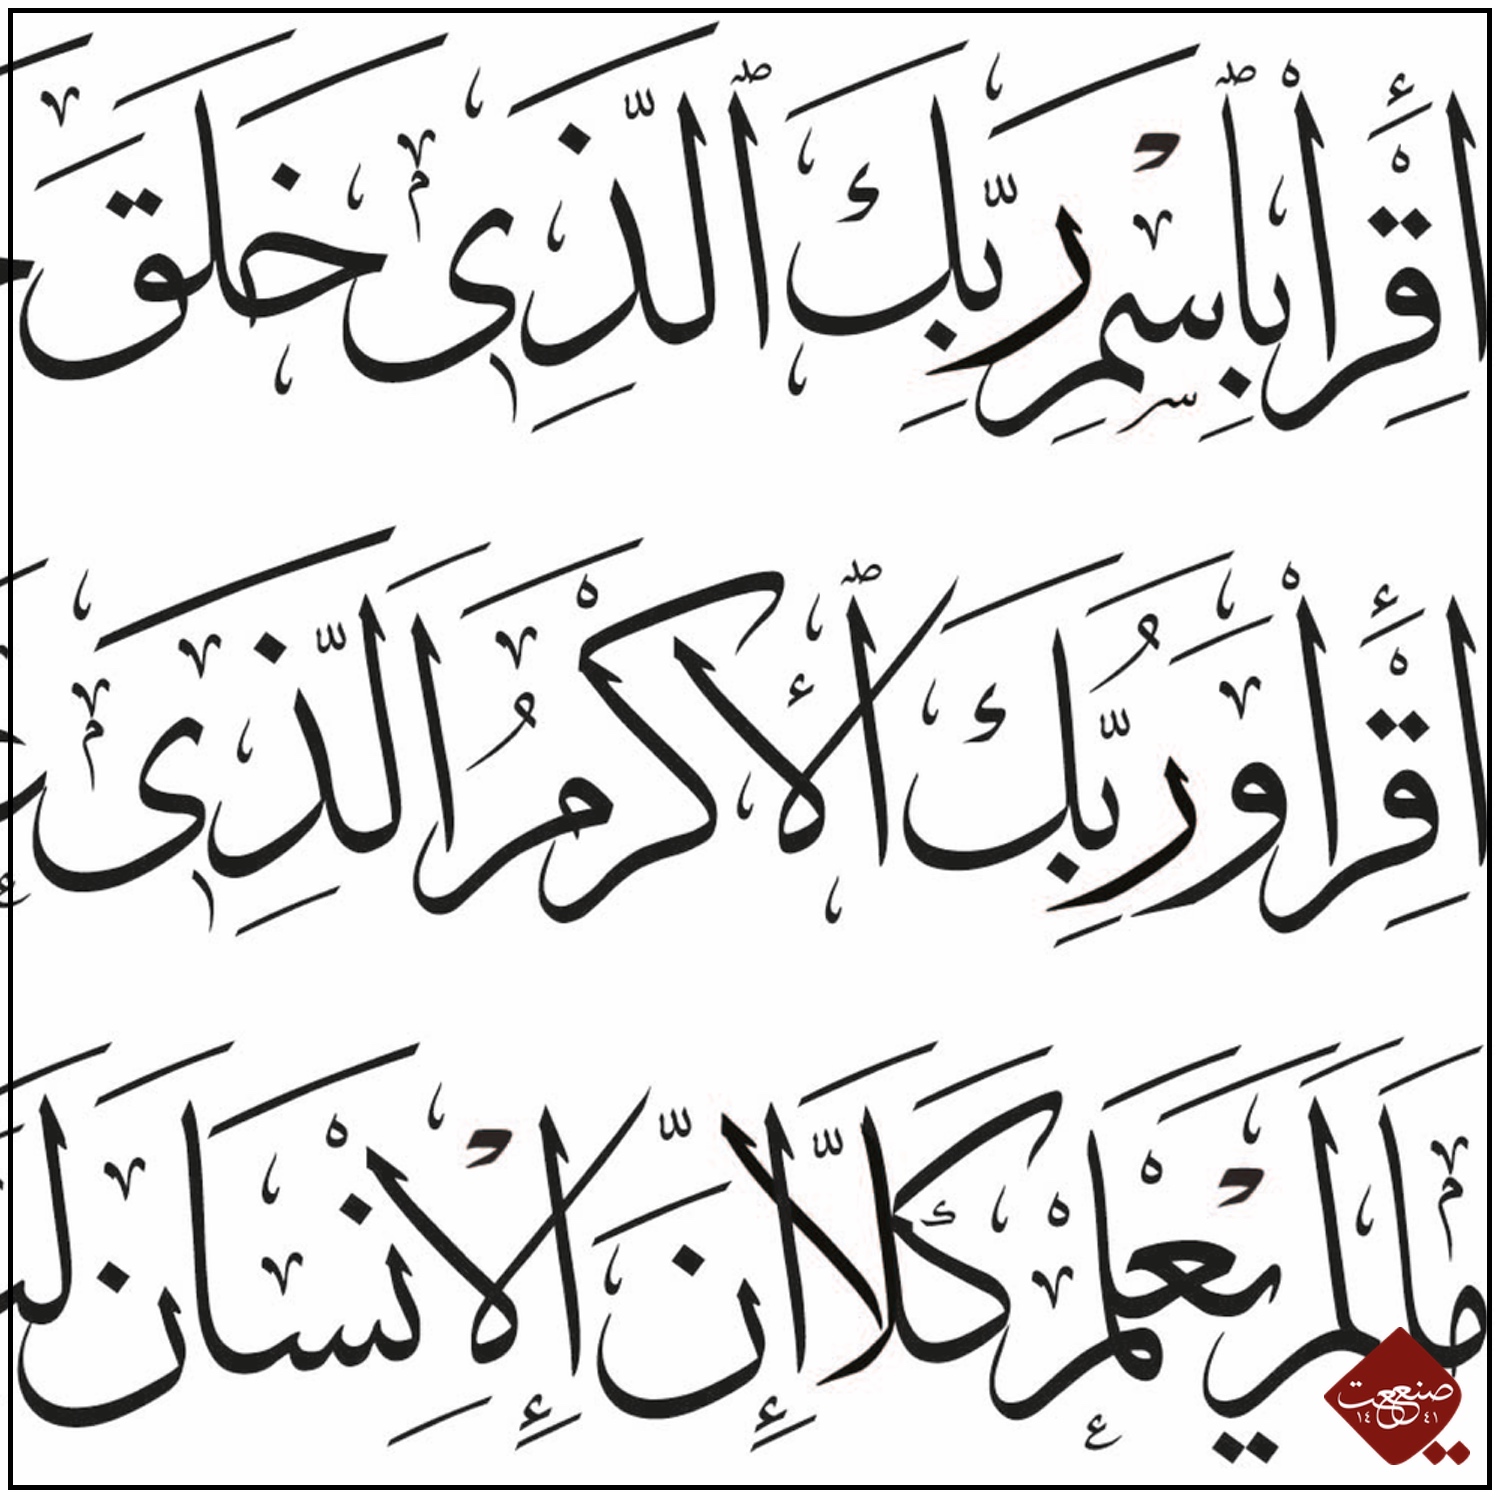 ٱقْرَأْ بِٱسْمِ رَبِّكَ ٱلَّذِى خَلَقَ
ٱقْرَأْ وَرَبُّكَ ٱلْأَكْرَمُ الَّذِى
مَالَمْ يَعْلَمْ كَلَّا إِنَّ الْإِنْسَانَ
صنعت
١٤٤١